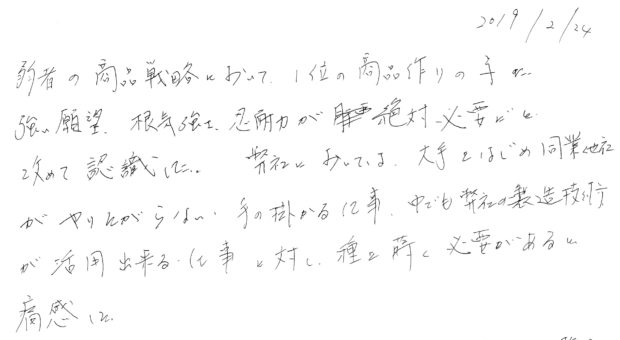 2019/2/24
弱者の商品戦略において、1位の商品作りの
強い願望、根気強さ、忍耐力が絶対必要だと
改めて認識した。弊社においては、大手をはじめ同業他社
がやりたがらない、手の掛かる仕事、中でも弊社の製造技術
が活用出来る仕事に対し、種を蒔く必要があると
痛感した。